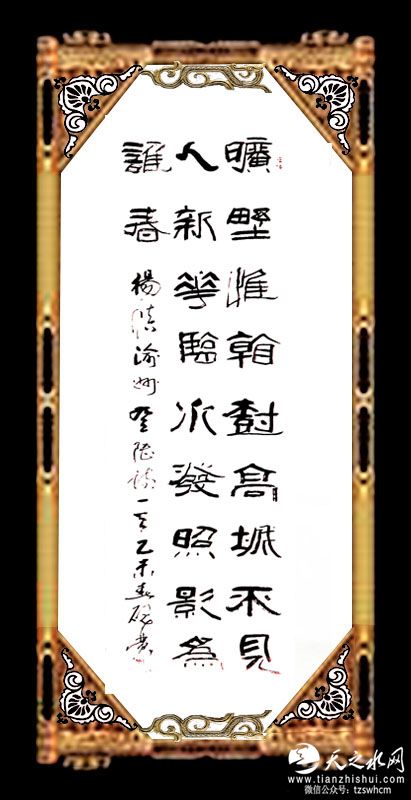 曠野惟翰樹高城不見
人新華臨水發照影為
誰春
楊慎渝州登陸詩一首乙未春
天之水网
www.tianzhishui.com
微信公众号:tzswhcm